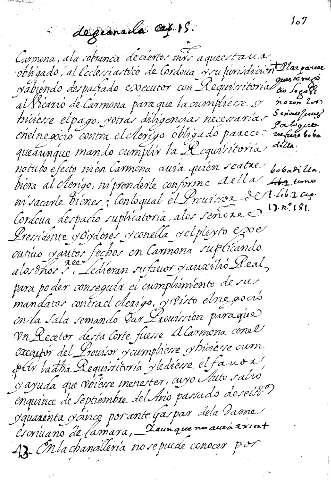 de granada Cap. 15.
107
Carmona, a la cobrança de ciertos mrs a que estaua
obligado, al ecclesiastico de Cordoua y su jurisdicion
y abiendo despachado executor con Requisitoria
al Vicario de Carmona para que la cumpliese y
hiciese el pago, y otras diligencias necesarias
en el negocio contra el clerigo obligado parece
que aunque mando cumplir la Requisitoria
no tubo efecto ni en Carmona auia quien se atre
biera al clerigo, ni prenderle conforme a ella
ni sacarle Vienes; con lo qual el Prouisor de
Cordoua despacho suplicatoria, a los señores
Presidente y Oydores y con ella y el pleyto exe
cutiuo y autos fechos en Carmona suplicando
a los dhos ss. le dieran su fauor y auxilio Real
para poder conseguir el cumplimiento de sus
mandatos contra el clerigo, y visto el negocio
en la Sala se mando dar Prouission para que
Vn Receptor desta Corte fuesse a Carmona con el
executor del Prouisor y cumpliese y hiciese cum
plir la dha Requisitoria y le diese el fauor
y ayuda que Vbiese menester, cuyo Auto salio
en quince de septiembre del Año pasado de seiscientos
y quarenta y cinco por ante gaspar de la Varne
escriuano de Camara,
13. En la chancilleria no se puede conocer por
bobadilla,
lib. 2. cap.
17. n.º 181.